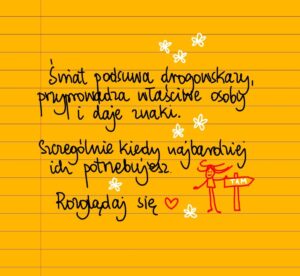 Świat podsuwa drogowskazy,
przyprowadza właściwe osoby
i daje znaki.
Szczególnie kiedy najbardziej
ich potrzebujesz.
Rozglądaj się
TAM